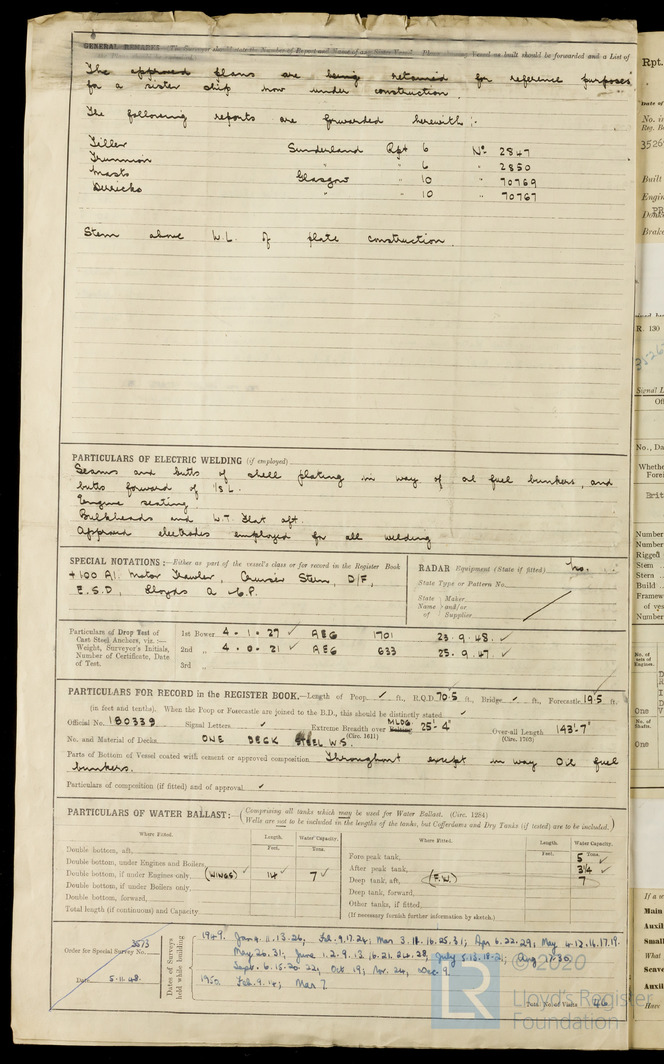 GENERAL REMARKS
The approved plans are being retained for reference purposes
for a sister ship now under construction
The following reports are forwarded herewith :-
Tiller Sunderland Rpt 6 No 2847
Trunnion " 6 " 2850
Masts Glasgow " 10 " 70769
Derricks " " 10 " 70767
Stem above W.L. of plate construction.
PARTICULARS OF ELECTRIC WELDING (if employed)
Seams and butts of shell plating in way of oil fuel bunkers, and
butts forward of 1/5 L.
Engine seating.
Bulkheads and W.T. flat aft.
Approved electrodes employed for all welding
SPECIAL NOTATIONS :—Either as part of the vessel's class or for record in the Register Book
+100 A1. Motor Trawler, Cruiser Stern, D/F,
E.S.D, Lloyds A & C.P.
RADAR Equipment (State if fitted) No.
State Type or Pattern No.
State Name of } Maker and/or Supplier
Particulars of Drop Test of Cast Steel Anchors, viz. :— Weight, Surveyor's Initials, Number of Certificate, Date of Test.
1st Bower 4 . 1 . 27 ✓ AEG 1701 23 . 9 . 48 . ✓
2nd " 4 . 0 . 21 ✓ AEG 633 25 . 9 . 47 . ✓
3rd "
PARTICULARS FOR RECORD in the REGISTER BOOK.—Length of Poop ✓ ft., R.Q.D. 70.5 ft., Bridge ✓ ft., Forecastle 19.5 ft.
(in feet and tenths). When the Poop or Forecastle are joined to the B.D., this should be distinctly stated ✓
Official No. 180339 Signal Letters ✓ Extreme Breadth over MLDG (Circ. 1611) 25'-4" Over-all Length (Circ. 1703) 143'-7"
No. and Material of Decks ONE DECK STEEL W.S.
Parts of Bottom of Vessel coated with cement or approved composition Throughout except in way Oil fuel
bunkers.
Particulars of composition (if fitted) and of approval ✓
PARTICULARS OF WATER BALLAST :— (Comprising all tanks which may be used for Water Ballast. (Circ. 1284)
Wells are not to be included in the lengths of the tanks, but Cofferdams and Dry Tanks (if tested) are to be included.)
Where Fitted. Length. Water Capacity.
Feet. Tons.
Double bottom, aft,
Double bottom, under Engines and Boilers,
Double bottom, if under Engines only, (WINGS) ✓ 14 ✓ 7 ✓
Double bottom, if under Boilers only,
Double bottom, forward,
Total length (if continuous) and Capacity
Where Fitted. Length. Water Capacity.
Feet. Tons.
Fore peak tank, 5 ✓
After peak tank, 3¼ ✓
Deep tank, aft, (F.W.) 7
Deep tank, forward,
Other tanks, if fitted,
(If necessary furnish further information by sketch.)
Order for Special Survey No. 3573
Date 5.11.48.
Dates of Surveys held while building
1949. Jan 4. 11. 13. 26; Feb. 9. 17. 24; Mar 3. 11. 16. 25. 31; Apr 6. 22. 29; May 4. 12. 14. 17. 19.
May 26. 31; June 1. 2. 9. 13. 16. 21. 24. 28; July 5. 13. 18. 21; Aug 17. 30
Sept. 6. 15. 20. 22; Oct 19; Nov. 24, Dec. 9.
1950. Feb. 9. 14; Mar 7
Total No. of Visits 46
© 2020
LR
Lloyd's Register
Foundation
Rpt.
Built
R. 130
Number
One